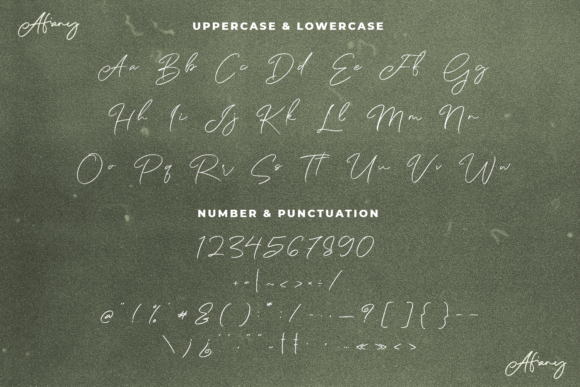 Afany
UPPERCASE & LOWERCASE
Aa Bb Cc Dd Ee Ff Gg
Hh Ii Jj Kk Ll Mm Nn
Oo Pq Rr Ss Tt Uu Vv Ww
NUMBER & PUNCTUATION
1234567890
+=|~<>×÷/
@"!%'#&()
?[]{}
«»<>
Afany